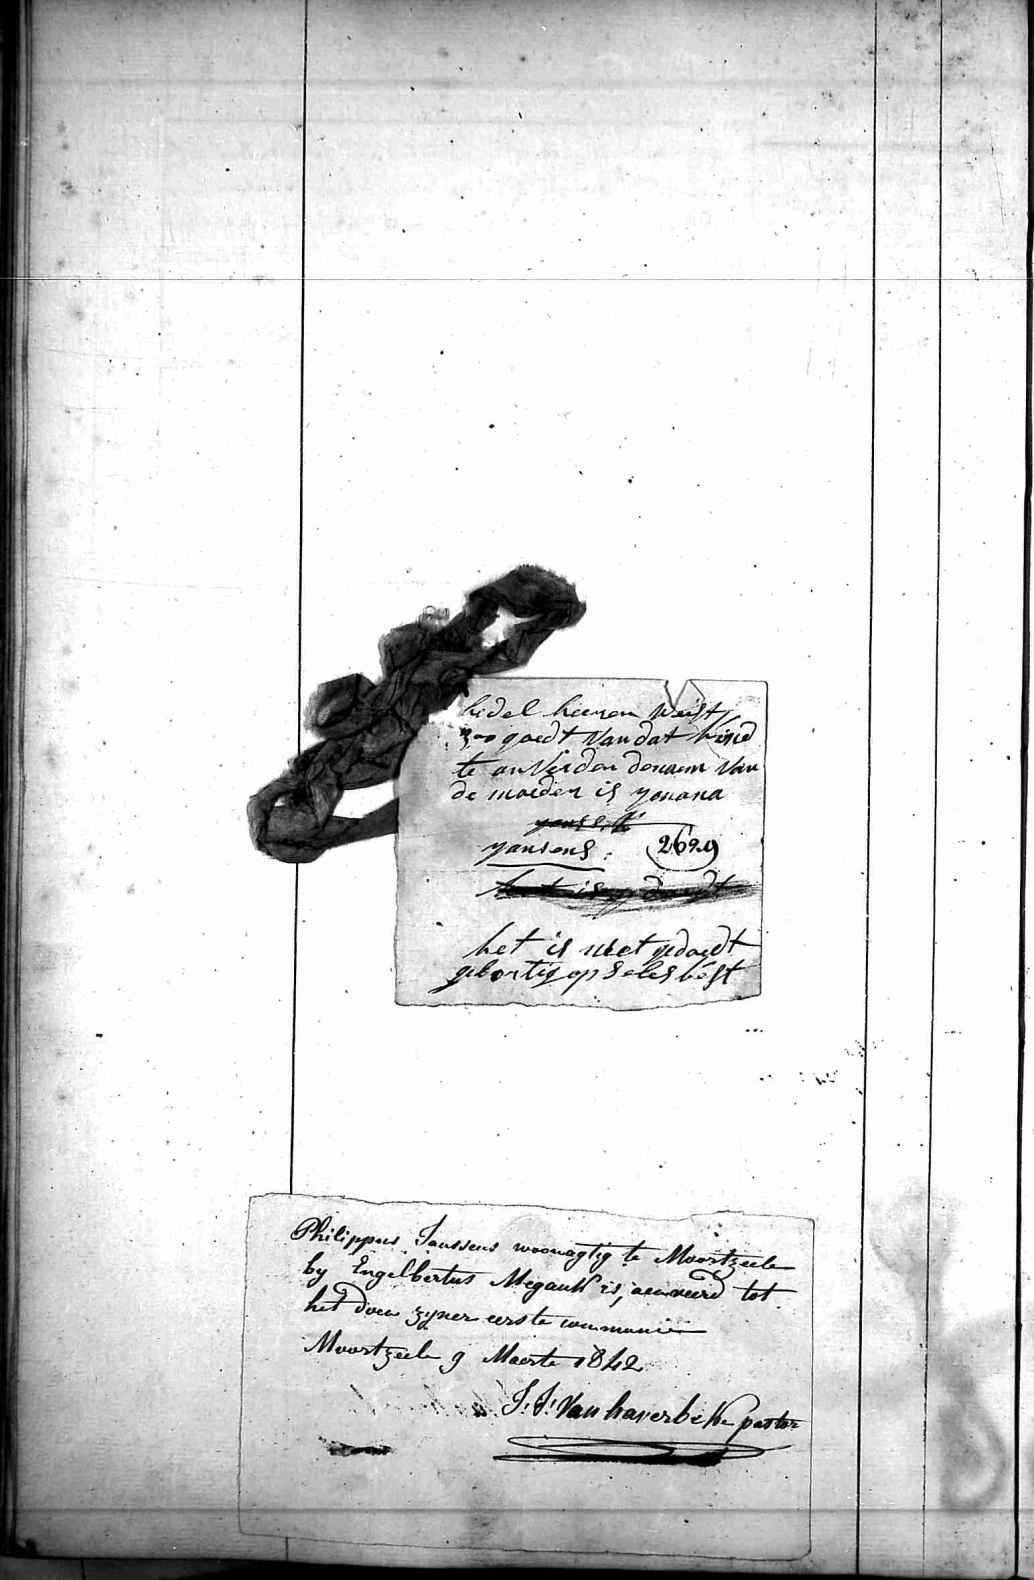 hedel heeren weist
zoo goedt van dat kind
te anverden denaem van
de moeder is yonana
yansens. 2629
het is niet gedoedt
gebortig op seles best
Philippus Janssens woonagtig te Moortzeele
by Engelbertus Megank is, aenveerd tot
het doen zyner eerste communie
Moortzeele 9 Maerte 1842
J. J. Van haverbeke pastor